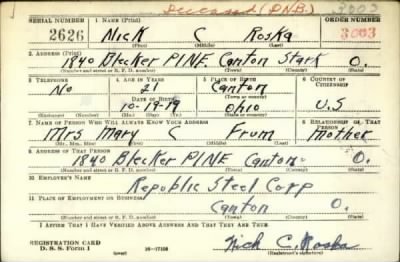 Deceased (DNB) 3003
SERIAL NUMBER 1. NAME (Print) ORDER NUMBER
2626 Nick C Roska 3003
(First) (Middle) (Last)
2. ADDRESS (Print)
1840 Blecker PINE Canton Stark O.
(Number and street or R. F. D. number) (Town) (County) (State)
3. TELEPHONE 4. AGE IN YEARS 5. PLACE OF BIRTH 6. COUNTRY OF CITIZENSHIP
No 21 Canton
DATE OF BIRTH (Town or county)
10-19-19 Ohio U.S
(Exchange) (Number) (Mo.) (Day) (Yr.) (State or country)
7. NAME OF PERSON WHO WILL ALWAYS KNOW YOUR ADDRESS 8. RELATIONSHIP OF THAT PERSON
Mrs Mary C Frum Mother
(Mr., Mrs., Miss) (First) (Middle) (Last)
9. ADDRESS OF THAT PERSON
1840 Blecker PINE Canton O.
(Number and street or R. F. D. number) (Town) (County) (State)
10. EMPLOYER'S NAME
Republic Steel Corp
11. PLACE OF EMPLOYMENT OR BUSINESS
Canton O
(Number and street or R. F. D. number) (Town) (County) (State)
I AFFIRM THAT I HAVE VERIFIED ABOVE ANSWERS AND THAT THEY ARE TRUE.
REGISTRATION CARD
D. S. S. Form 1 16-17105 (over) Nick C. Roska
(Registrant's signature)